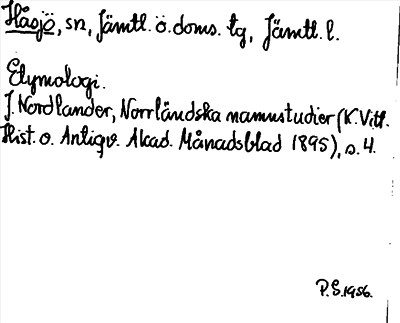 Håsjö, sn, Jämtl. ö. doms. tg, Jämtl. l.
Etymologi.
J. Nordlander, Norrländska namnstudier (K. Vitt.
Hist. o. Antiqv. Akad. Månadsblad 1895), s. 4.
P.S. 1956.